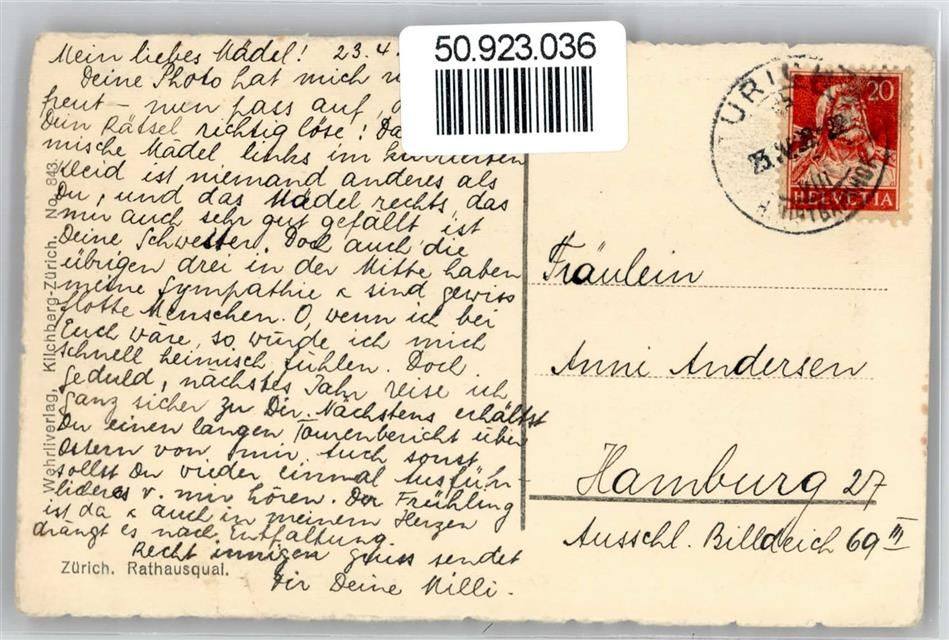 50.923.036
Mein liebes Mädel! 23.4.
Deine Photo hat mich
freut – nun pass auf,
Dein Rätsel richtig löse!
mische Mädel links im karrierten
Kleid ist niemand anderes als
Du, und das Mädel rechts, das
mir auch sehr gut gefällt, ist
Deine Schwester. Doch auch die
übrigen drei in der Mitte haben
meine Sympathie & sind gewiss
flotte Menschen. O, wenn ich bei
Euch wäre, so würde ich mich
schnell heimisch fühlen. Doch
Geduld, nächstes Jahr reise ich
ganz sicher zu Dir. Nächstens erhältst
Du einen langen Tourenbericht über
Ostern von mir. Auch sonst
sollst Du wieder einmal Ausführ-
licheres v. mir hören. Der Frühling
ist da & auch in meinem Herzen
drängt es nach Entfaltung.
Recht innigen Gruss sendet
Dir Deine Milli.
Zürich. Rathausquai.
Wehrliverlag, Kilchberg-Zürich. No. 843.
20
HELVETIA
Fräulein
Anni Andersen
Hamburg 27
Ausschl. Billdeich 69 III